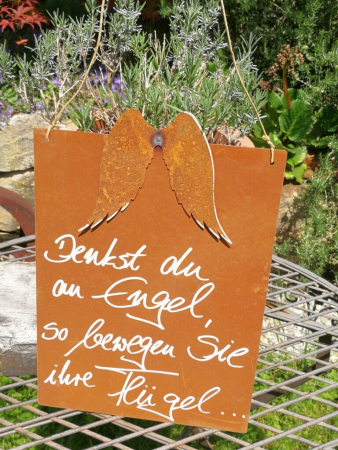 Denkst du
an Engel,
so bewegen sie
ihre Flügel...